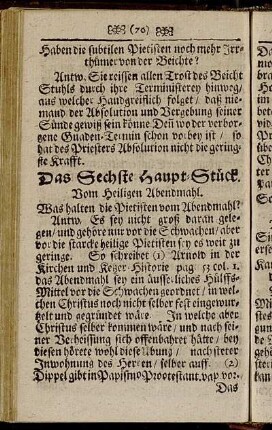 (70)
Haben die subtilen Pietisten noch mehr Irr-
thümer von der Beichte?
Antw. Sie reissen allen Trost des Beicht
Stuhls durch ihre Terministerey hinweg/
aus welcher Handgreiflich folget/ daß nie-
mand der Absolution und Vergebung seiner
Sünde gewiß sein könne Dem wo der verbor-
gene Gnaden-Termin schon vorbey ist/ so
hat des Priesters Absolution nicht die gering-
ste Krafft.
Das Sechste Haupt-Stück.
Vom Heiligen Abendmahl.
Was halten die Pietisten vom Abendmahl?
Antw. Es sey nicht groß daran gele-
gen/ und gehöre nur vor die Schwachen/ aber
vor die starcke heilige Pietisten sey es weit zu
geringe. So schreibet (1) Arnold in der
Kirchen und Kezer-Historie pag 53 col. 1.
das Abendmahl sey ein äusserliches Hülffs-
Mittel vor die Schwachen geordnet/ in wel-
chen Christus noch nicht selber fest eingewur-
tzelt und gegründet wäre. In welche aber
Christus selber kommen wäre/ und nach sei-
ner Verheissung sich offenbahret hätte/ bey
diesen hörete wohl diese Ubung/ nach streer
Inwohnung des Herren/ selber auff. (2)
Dippel gibt in Papismo Prootestant. vap vor.
Das